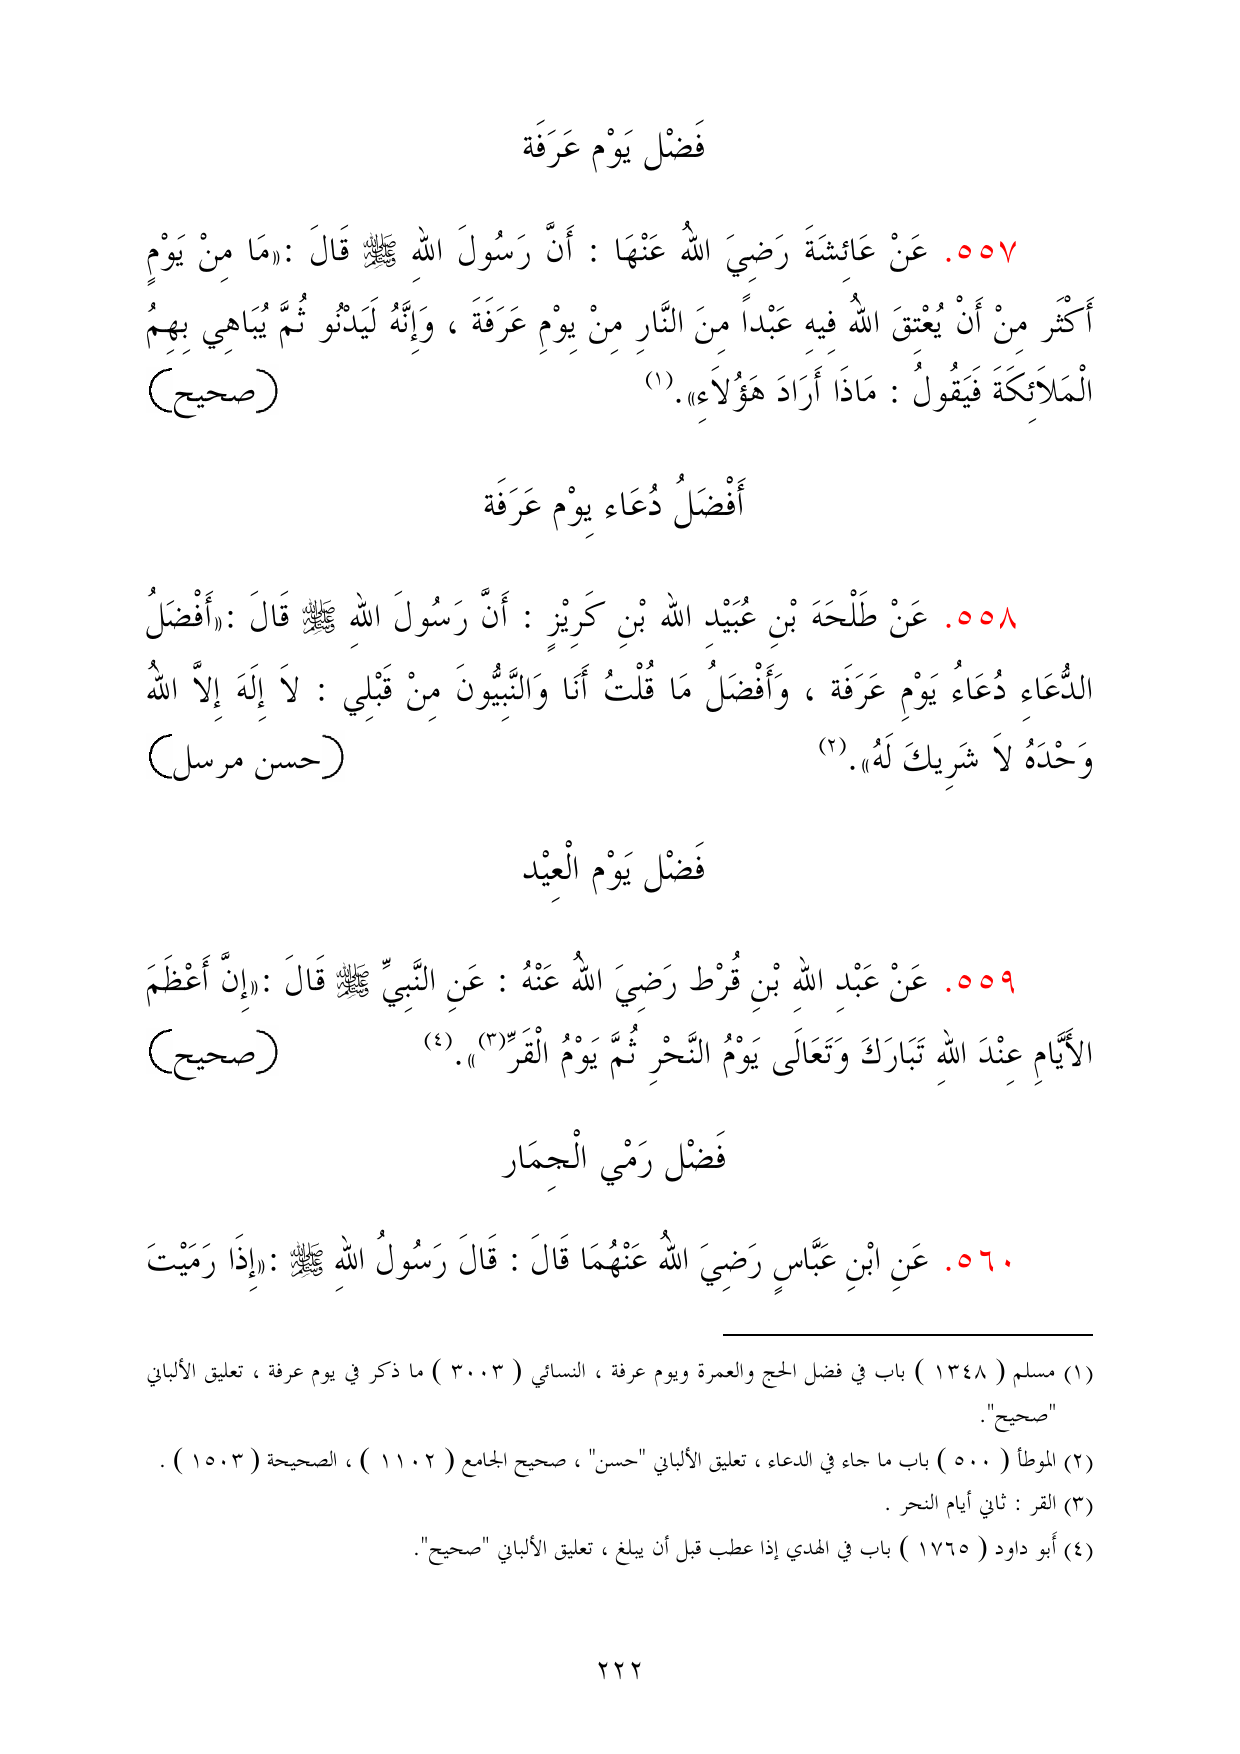 فَضْل يَوْم عَرَفَة
٥٥٧. عَنْ عَائِشَةَ رَضِيَ اللهُ عَنْهَا : أَنَّ رَسُولَ اللهِ ﷺ قَالَ :«مَا مِنْ يَوْمٍ
أَكْثَر مِنْ أَنْ يُعْتِقَ اللهُ فِيهِ عَبْداً مِنَ النَّارِ مِنْ يِوْمِ عَرَفَةَ ، وَإِنَّهُ لَيَدْنُو ثُمَّ يُبَاهِي بِهِمُ
الْمَلاَئِكَةَ فَيَقُولُ : مَاذَا أَرَادَ هَؤُلاَءِ».(١) (صحيح)
أَفْضَلُ دُعَاء يِوْم عَرَفَة
٥٥٨. عَنْ طَلْحَهَ بْنِ عُبَيْدِ الله بْنِ كَرِيْزٍ : أَنَّ رَسُولَ اللهِ ﷺ قَالَ :«أَفْضَلُ
الدُّعَاءِ دُعَاءُ يَوْمِ عَرَفَة ، وَأَفْضَلُ مَا قُلْتُ أَنَا وَالنَّبِيُّونَ مِنْ قَبْلِي : لاَ إِلَهَ إِلاَّ اللهُ
وَحْدَهُ لاَ شَرِيكَ لَهُ».(٢) (حسن مرسل)
فَضْل يَوْم الْعِيْد
٥٥٩. عَنْ عَبْدِ اللهِ بْنِ قُرْط رَضِيَ اللهُ عَنْهُ : عَنِ النَّبِيِّ ﷺ قَالَ :«إِنَّ أَعْظَمَ
الأَيَّامِ عِنْدَ اللهِ تَبَارَكَ وَتَعَالَى يَوْمُ النَّحْرِ ثُمَّ يَوْمُ الْقَرِّ(٣)».(٤) (صحيح)
فَضْل رَمْي الْجِمَار
٥٦٠. عَنِ ابْنِ عَبَّاسٍ رَضِيَ اللهُ عَنْهُمَا قَالَ : قَالَ رَسُولُ اللهِ ﷺ :«إِذَا رَمَيْتَ
(١) مسلم ( ١٣٤٨ ) باب في فضل الحج والعمرة ويوم عرفة ، النسائي ( ٣٠٠٣ ) ما ذكر في يوم عرفة ، تعليق الألباني
"صحيح".
(٢) الموطأ ( ٥٠٠ ) باب ما جاء في الدعاء ، تعليق الألباني "حسن" ، صحيح الجامع ( ١١٠٢ ) ، الصحيحة ( ١٥٠٣ ) .
(٣) القر : ثاني أيام النحر .
(٤) أَبو داود ( ١٧٦٥ ) باب في الهدي إذا عطب قبل أن يبلغ ، تعليق الألباني "صحيح".
٢٢٢